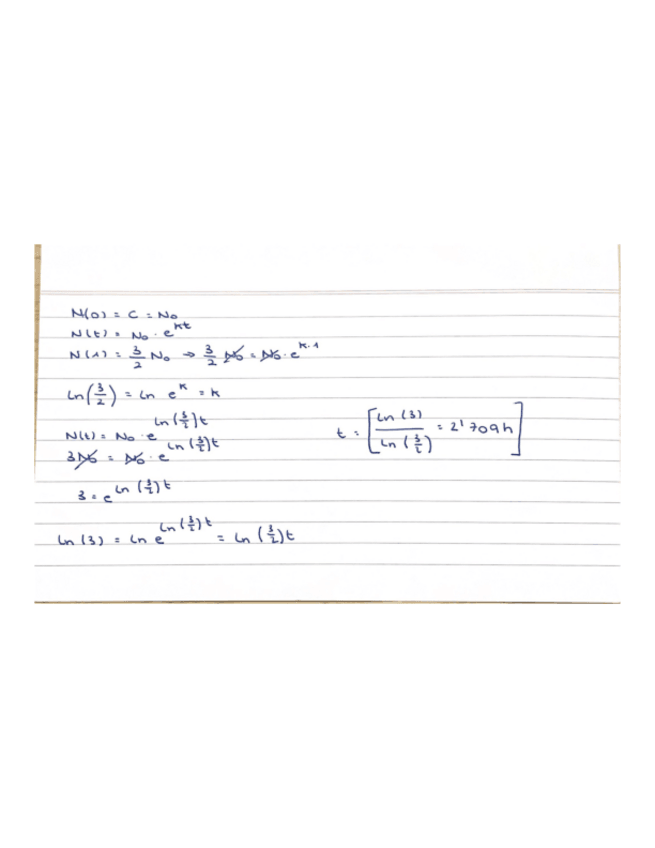 N(0) = C = N₀
N(t) = N₀ · e^(kt)
N(1) = 3/2 N₀ → 3/2 N₀ = N₀ · e^(k·1)
Ln(3/2) = Ln e^k = k
N(t) = N₀ · e^(Ln(3/2)t)
3N₀ = N₀ · e^(Ln(3/2)t)
3 = e^(Ln(3/2)t)
Ln(3) = Ln e^(Ln(3/2)t) = Ln(3/2)t
t = [Ln(3)/Ln(3/2) = 2'709h]